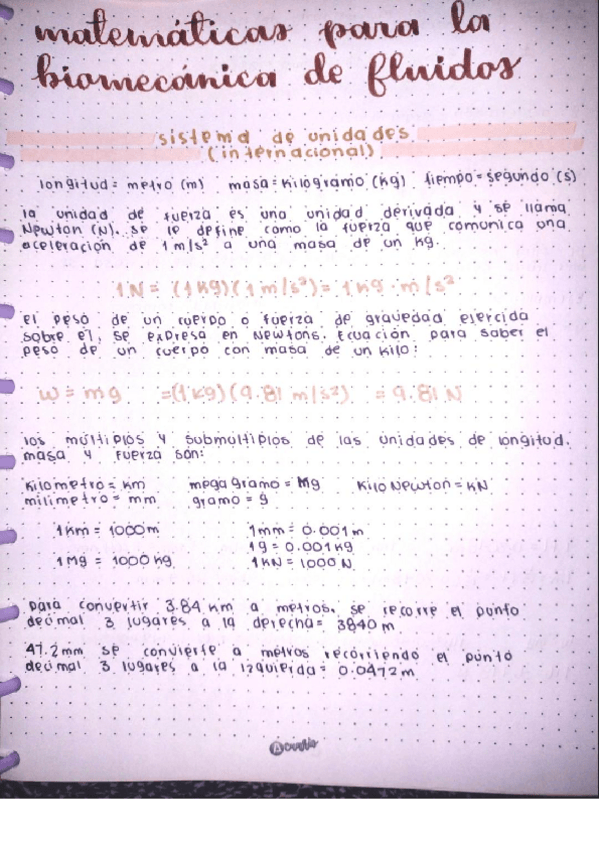 matemáticas para la
biomecánica de fluidos
sistema de unidades
(internacional)
longitud= metro (m) masa= kilogramo (kg) tiempo= segundo (s)
la unidad de fuerza es una unidad derivada y se llama
Newton (N). se le define como la fuerza que comunica una
aceleración de 1 m/s² a una masa de un kg.
1N = (1 kg)(1 m/s²) = 1 kg · m/s²
el peso de un cuerpo o fuerza de gravedad ejercida
sobre él, se expresa en Newtons. Ecuación para saber el
peso de un cuerpo con masa de un kilo:
w = mg =(1 kg)(9.81 m/s²) = 9.81 N
los múltiplos y submultiplos de las unidades de longitud,
masa y fuerza son:
kilometro = km megagramo = Mg Kilo Newton = kN
milimetro = mm gramo = g
1 km = 1000 m 1 mm = 0.001 m
1 g = 0.001 kg
1 Mg = 1000 kg 1 kN = 1000 N
para convertir 3.84 km a metros, se recorre el punto
decimal 3 lugares a la derecha= 3840 m
47.2 mm se convierte a metros recorriendo el punto
decimal 3 lugares a la izquierda= 0.0472 m